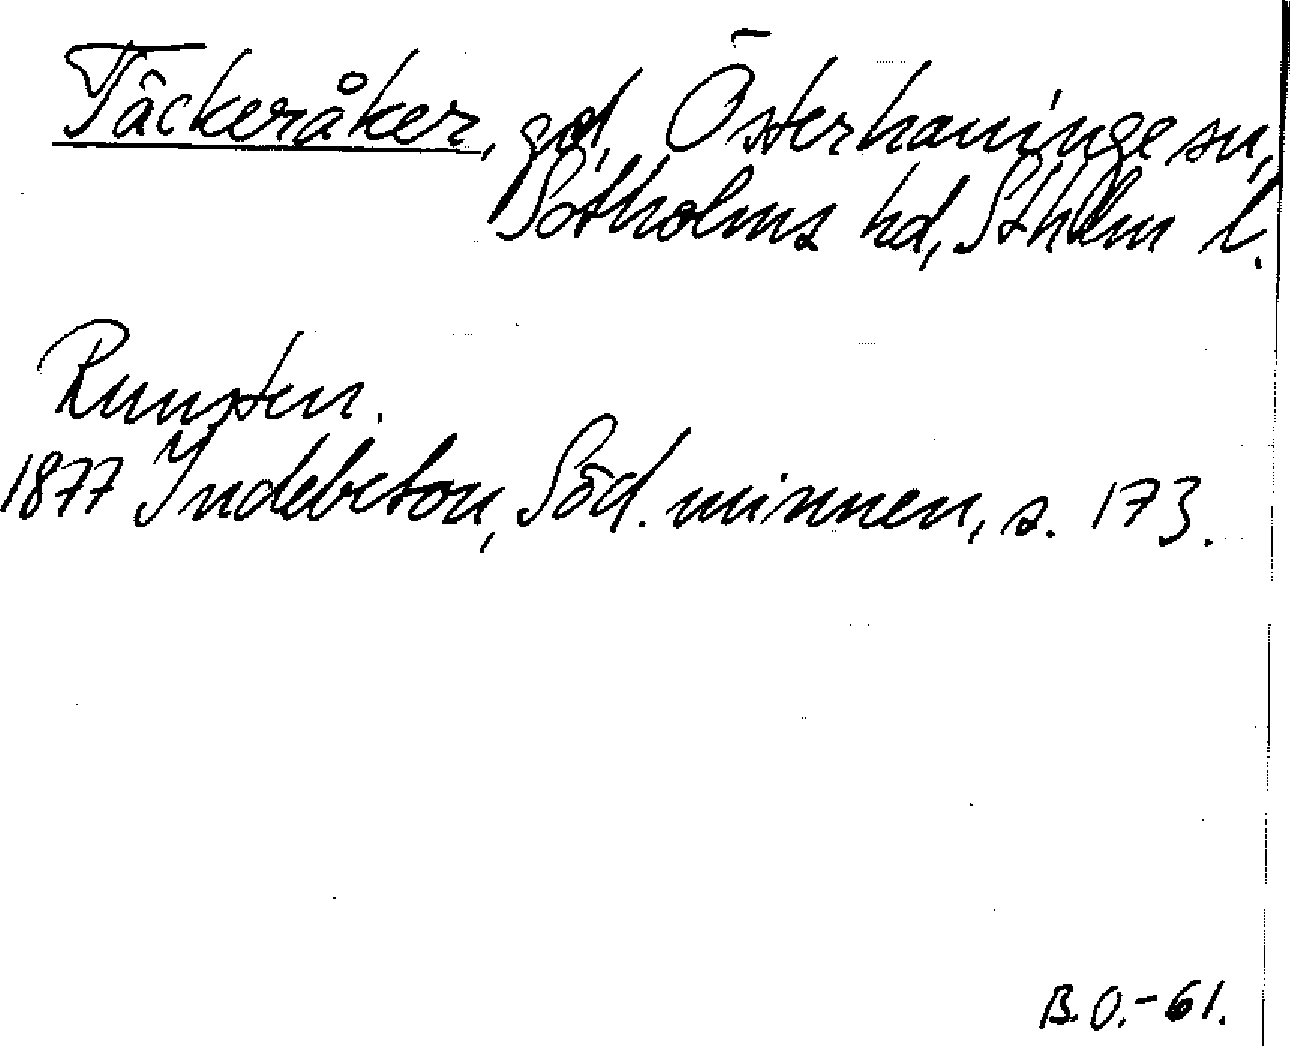 Täckeråker, gd, Österhaninge sn,
Sotholms hd, Sthlm l.
Runsten.
1877 Indebetou, Söd. minnen, s. 173.
B.O.-61.